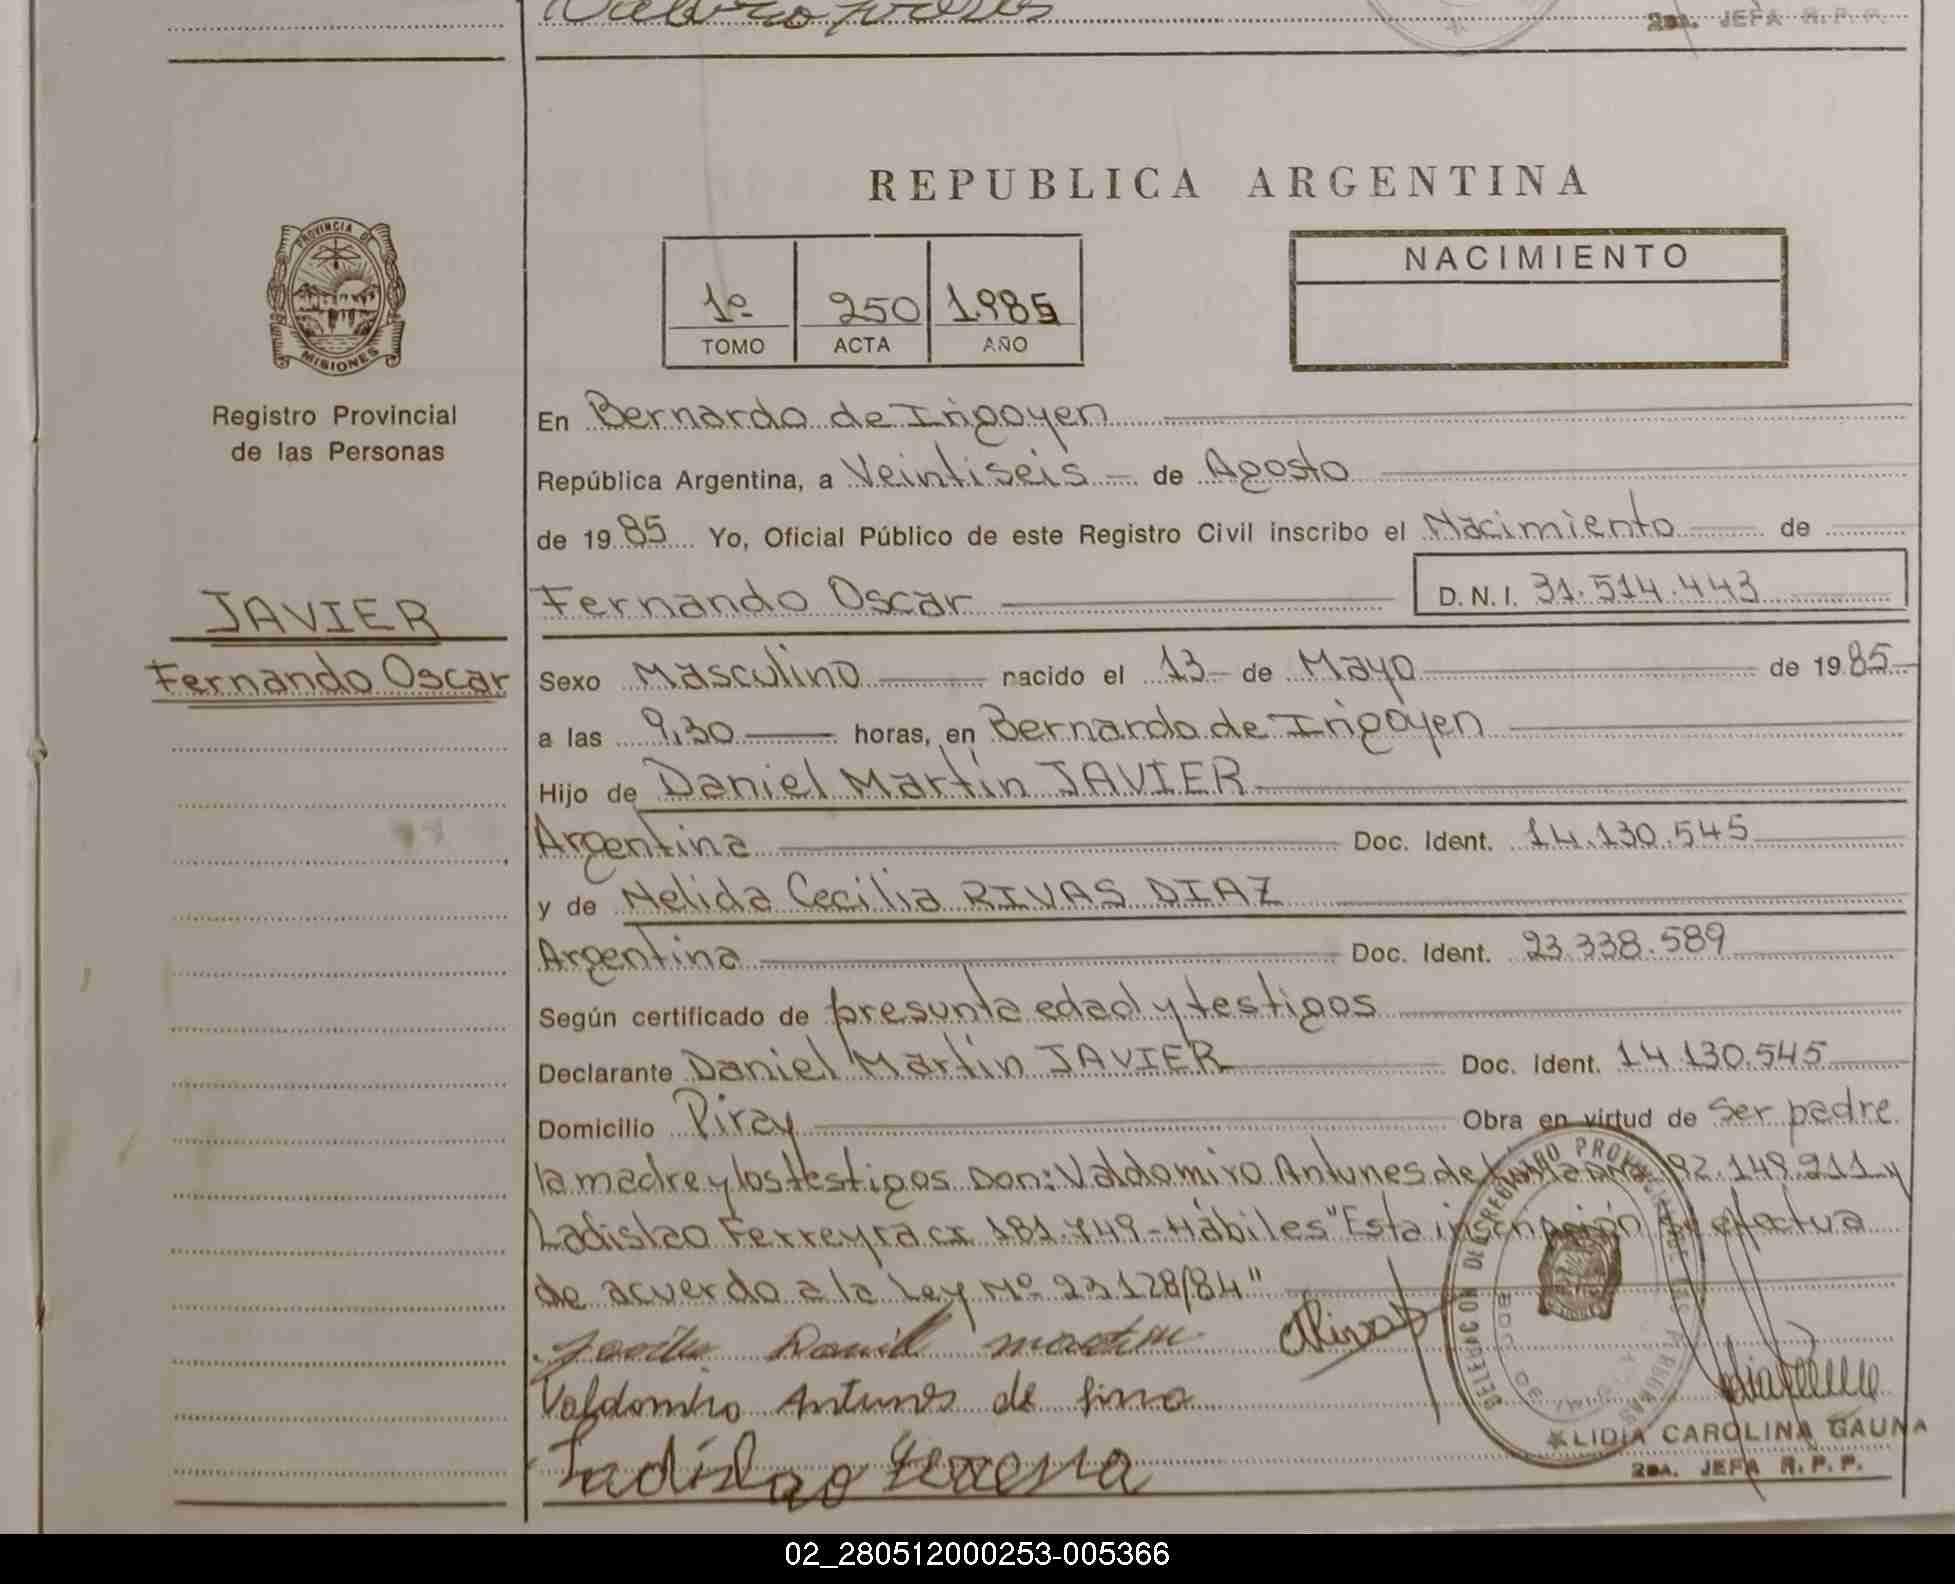 2da. JEFA R.P.P.
REPUBLICA ARGENTINA
PROVINCIA DE
MISIONES
Registro Provincial
de las Personas
1º 250 1.985
TOMO ACTA AÑO
NACIMIENTO
En Bernardo de Irigoyen
República Argentina, a Veintiseis de Agosto
de 1985 Yo, Oficial Público de este Registro Civil inscribo el Nacimiento de
JAVIER
Fernando Oscar
Fernando Oscar D.N.I. 31.514.443
Sexo Masculino nacido el 13 de Mayo de 1985
a las 9,30 horas, en Bernardo de Irigoyen
Hijo de Daniel Martín JAVIER
Argentina Doc. Ident. 14.130.545
y de Nelida Cecilia RIVAS DIAZ
Argentina Doc. Ident. 23.338.589
Según certificado de presunta edad y testigos
Declarante Daniel Martín JAVIER Doc. Ident. 14.130.545
Domicilio Piray Obra en virtud de ser padre
la madre y los testigos Don: Valdomiro Antunes de 92.149.211 y
Ladislao Ferreyra CI 181.749 - Hábiles "Esta inscripción se efectua
de acuerdo a la Ley Nº 23128/84"
Daniel Martin
Rivas
Valdomiro Antunes de Lima
Ladislao Ferreyra
DELEGACION DEL REGISTRO PROVINCIAL DE LAS PERSONAS
LIDIA CAROLINA GAUNA
2DA. JEFA R.P.P.
02_280512000253-005366